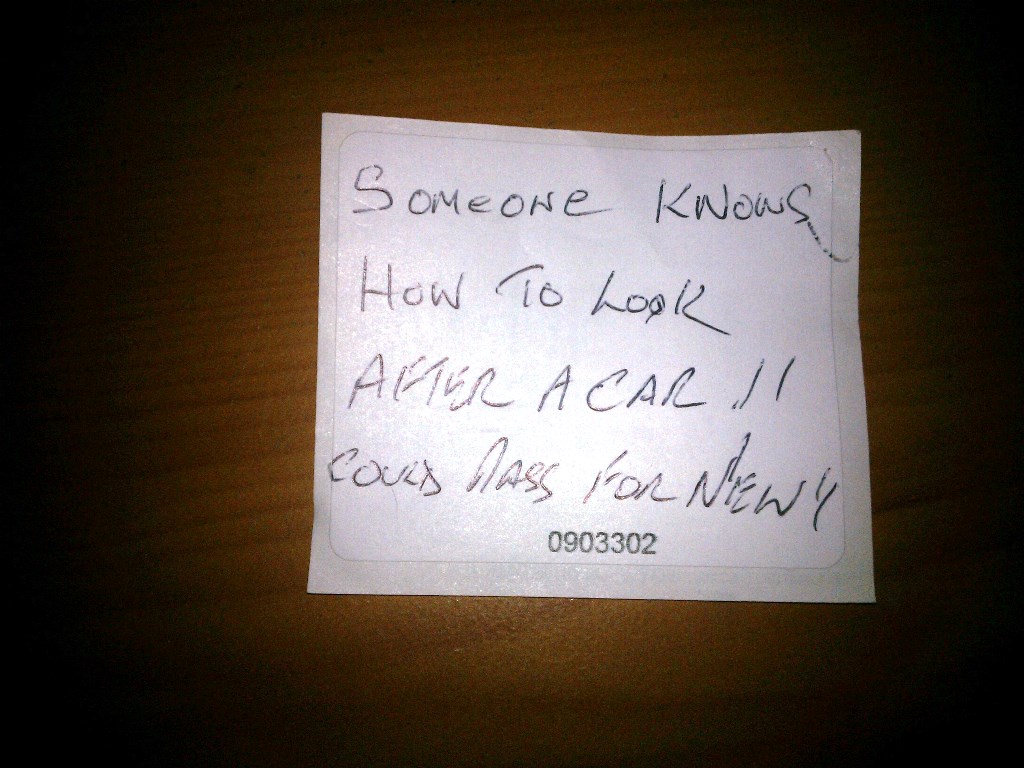 SOMEONE KNOWS
HOW TO LOOK
AFTER A CAR !!
COULD PASS FOR NEW!
0903302